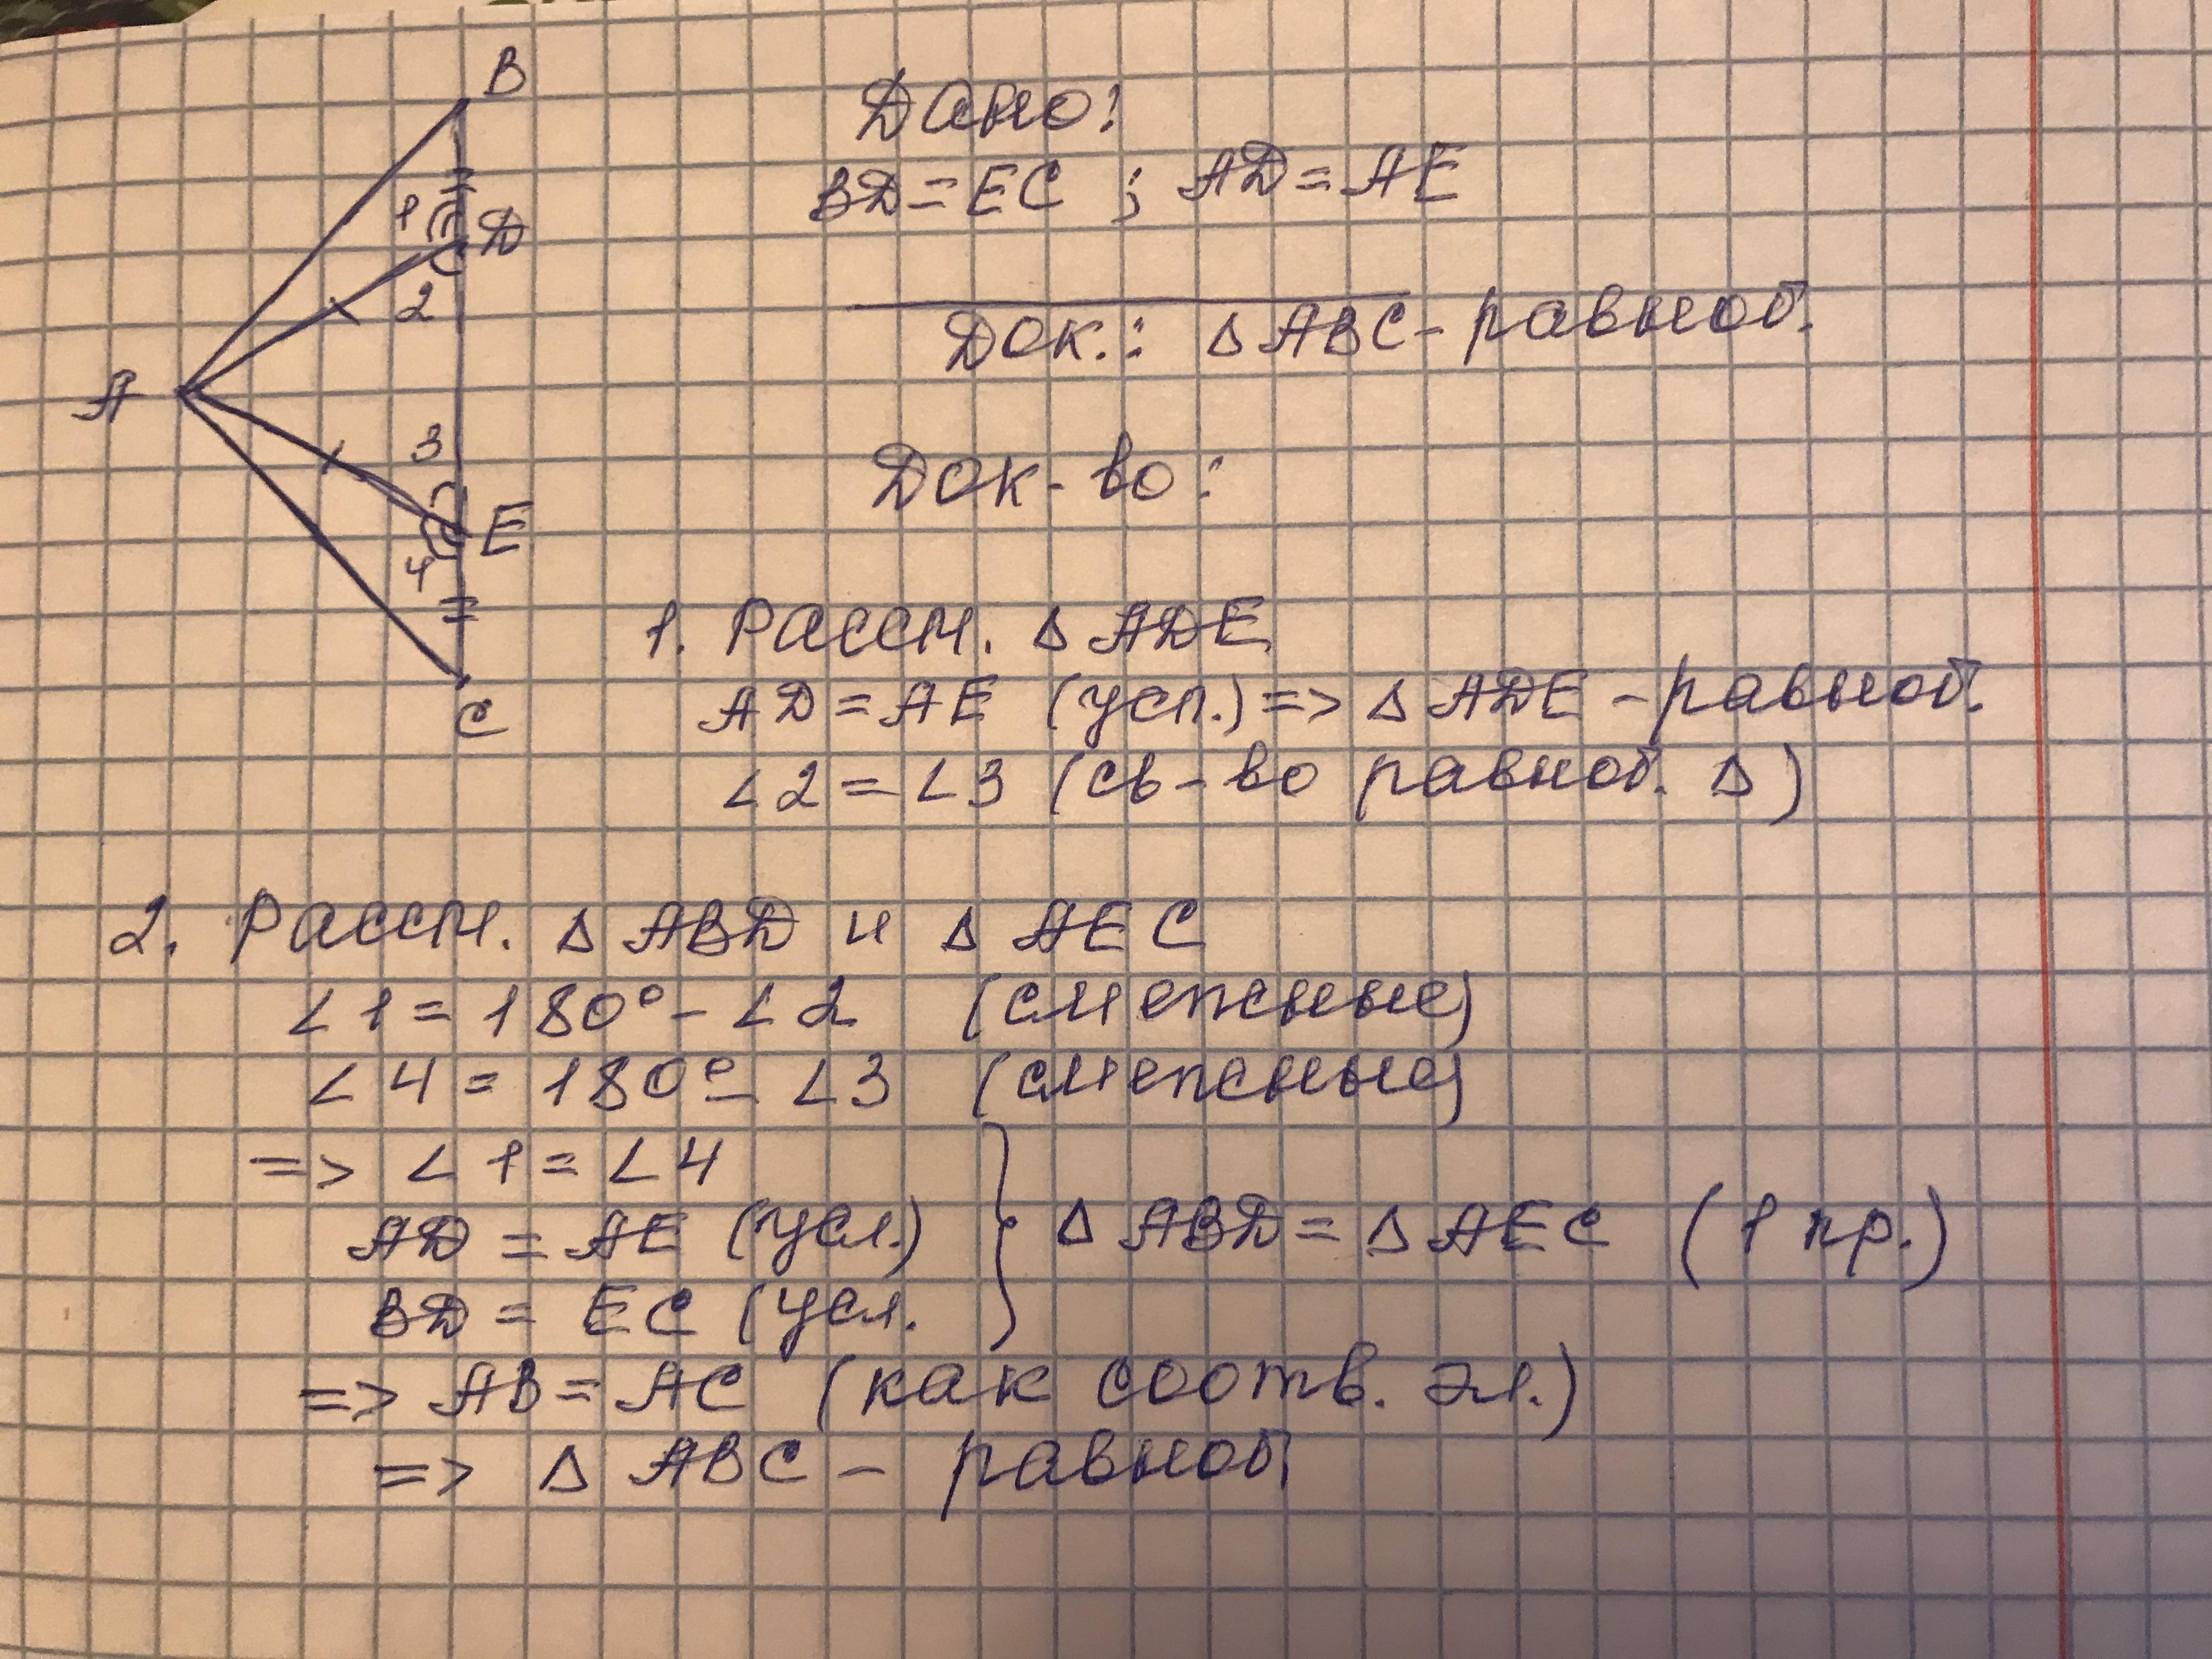 B
1
D
2
A
3
E
4
C
Дано:
BD = EC ; AD = AE
Док.: Δ ABC - равноб.
Док-во:
1. Рассм. Δ ADE
AD = AE (усл.) => Δ ADE - равноб.
∠2 = ∠3 (св-во равноб. Δ)
2. Рассм. Δ ABD и Δ AEC
∠1 = 180° - ∠2 (смежные)
∠4 = 180° - ∠3 (смежные)
=> ∠1 = ∠4
AD = AE (усл.) } Δ ABD = Δ AEC (1 пр.)
BD = EC (усл.
=> AB = AC (как соотв. эл.)
=> Δ ABC - равноб